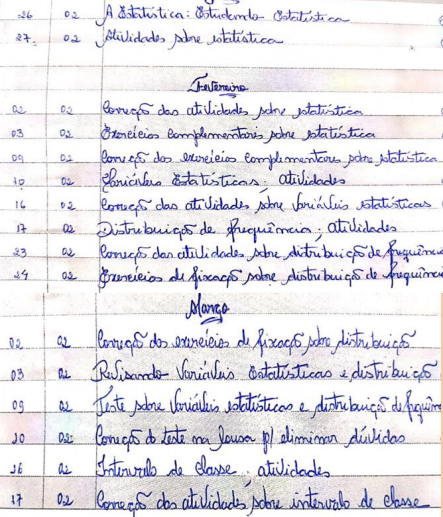 26 02 A Estatística: Estudando Estatística
27. 02 Atividades sobre estatística
Fevereiro
02 02 Correção das atividades sobre estatística
03 02 Exercícios complementares sobre estatística
09 02 Correção dos exercícios complementares sobre estatística
10 02 Variáveis Estatísticas; atividades
16 02 Correção das atividades sobre variáveis estatísticas
17 02 Distribuição de frequência; atividades
23 02 Correção das atividades sobre distribuição de frequência
24 02 Exercícios de fixação sobre distribuição de frequência
Março
02 02 Correção dos exercícios de fixação sobre distribuição
03 02 Revisando Variáveis Estatísticas e distribuição
09 02 Teste sobre Variáveis estatísticas e distribuição de frequên
10 02 Correção do teste na lousa p/ eliminar dúvidas
16 02 Intervalo de classe; atividades
17 02 Correção das atividades sobre intervalo de classe